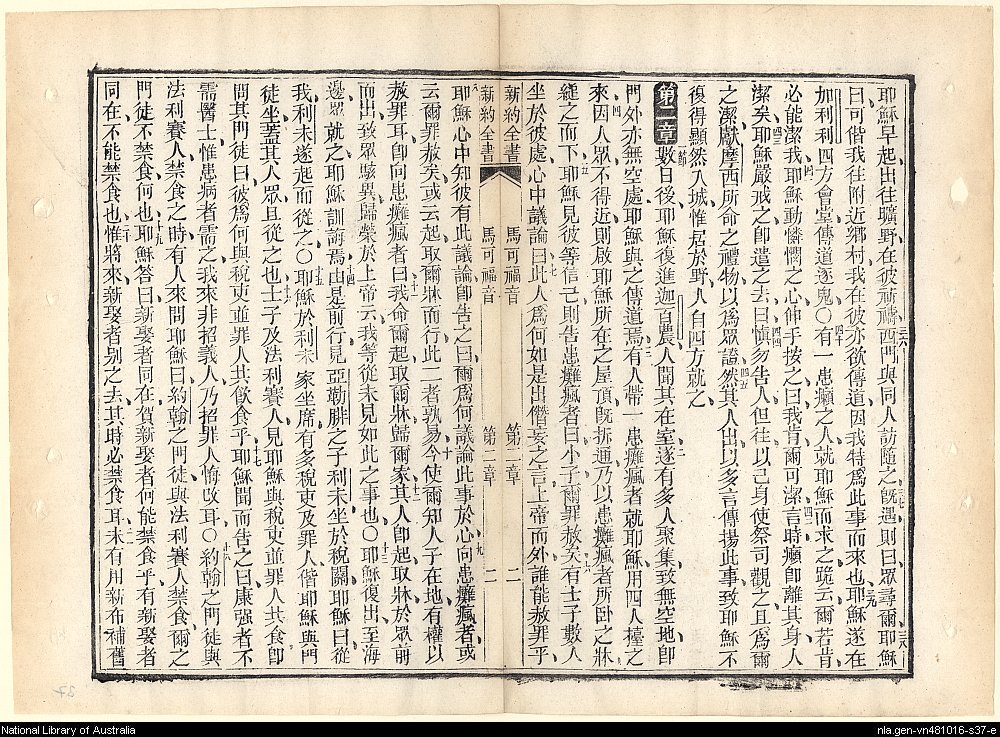 耶穌早起出往曠野在彼祈禱三六西門與同人訪隨之三七旣遇則曰眾尋爾三八耶穌
曰可偕我往附近鄉村我在彼亦欲傳道因我特爲此事而來也三九耶穌遂在
加利利四方會堂傳道逐鬼〇四十有一患癩之人就耶穌而求之跪云爾若肯
必能潔我四一耶穌動憐憫之心伸手按之曰我肯爾可潔四二言時癩卽離其身人
潔矣四三耶穌嚴戒之卽遣之去四四曰愼勿告人但往以己身使祭司觀之且爲爾
之潔獻摩西所命之禮物以爲眾證四五然其人出以多言傳揚此事致耶穌不
復得顯然入城惟居於野人自四方就之
第二章一節數日後耶穌復進迦百農人聞其在室二遂有多人聚集致無空地卽
門外亦無空處耶穌與之傳道焉三有人帶一患癱瘋者就耶穌用四人擡之
四來因人眾不得近則啟耶穌所在之屋頂旣拆通乃以患癱瘋者所臥之牀
縋之而下五耶穌見彼等信己則告患癱瘋者曰小子爾罪赦矣六有士子數人
坐於彼處心中議論七曰此人爲何如是出僭妄之言上帝而外誰能赦罪乎
新約全書 馬可福音 第二章 二
新約全書 馬可福音 第二章 二
八耶穌心中知彼有此議論卽告之曰爾爲何議論此事於心九向患癱瘋者或
云爾罪赦矣或云起取爾牀而行此二者孰易十今使爾知人子在地有權以
赦罪耳卽向患癱瘋者曰十一我命爾起取爾牀歸爾家十二其人卽起取牀於眾前
而出致眾駭異歸榮於上帝云我等從未見如此之事也〇十三耶穌復出至海
邊眾就之耶穌訓誨焉十四由是前行見亞勒腓之子利未坐於稅關耶穌曰從
我利未遂起而從之〇十五耶穌於利未家坐席有多稅吏及罪人偕耶穌與門
徒坐蓋其人眾且從之也十六士子及法利賽人見耶穌與稅吏並罪人共食卽
問其門徒曰彼爲何與稅吏並罪人共飮食乎十七耶穌聞而告之曰康强者不
需醫士惟患病者需之我來非招義人乃招罪人悔改耳〇十八約翰之門徒與
法利賽人禁食之時有人來問耶穌曰約翰之門徒與法利賽人禁食爾之
門徒不禁食何也十九耶穌答曰新娶者同在賀新娶者何能禁食乎有新娶者
同在不能禁食也二十惟將來新娶者别之去其時必禁食耳二一未有用新布補舊
National Library of Australia
nla.gen-vn481016-s37-e